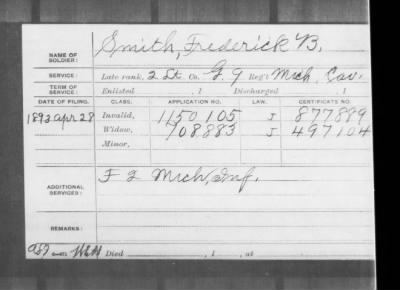 NAME OF SOLDIER: Smith, Frederick B.
SERVICE: Late rank, 2 Lt. Co. G, 9 Reg't Mich. Cav.
TERM OF SERVICE: Enlisted , 1 Discharged , 1
DATE OF FILING. CLASS. APPLICATION NO. LAW. CERTIFICATE NO.
1892 Apr 28 Invalid, 1150105 J 877889
Widow, 708883 J 497104
Minor,
ADDITIONAL SERVICES: F 2 Mich. Inf.
REMARKS:
Died , 1 , at